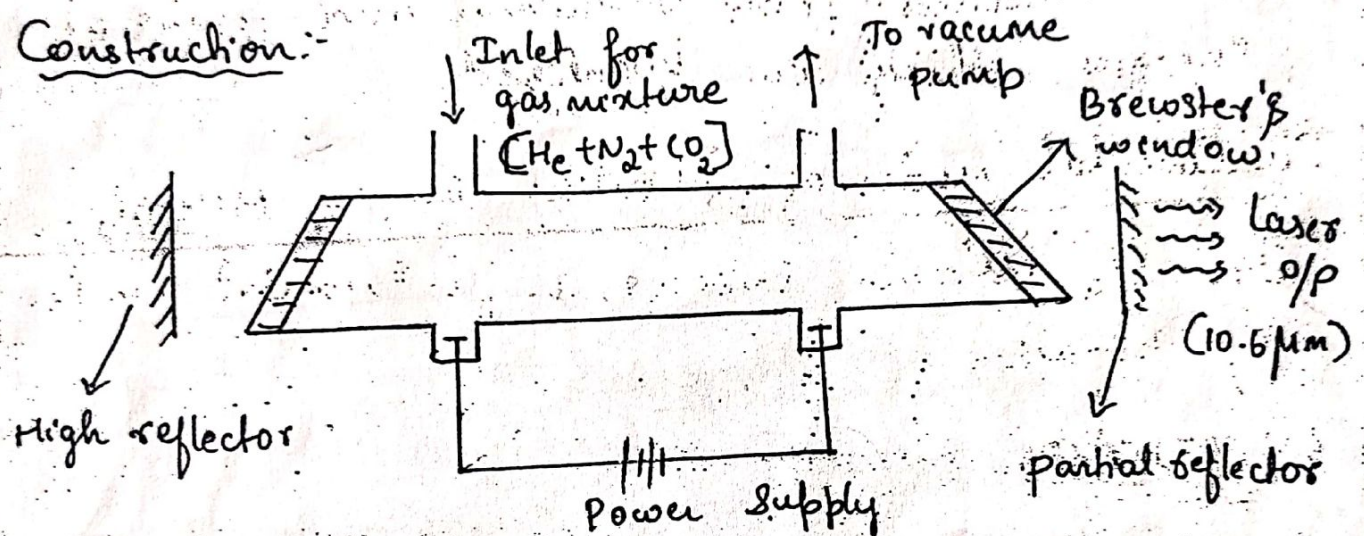 Construction:-
Inlet for
gas mixture
[He + N2 + CO2]
To vacume
pump
Brewster's
window
Laser
o/p
(10.6 μm)
High reflector
Power Supply
partial reflector